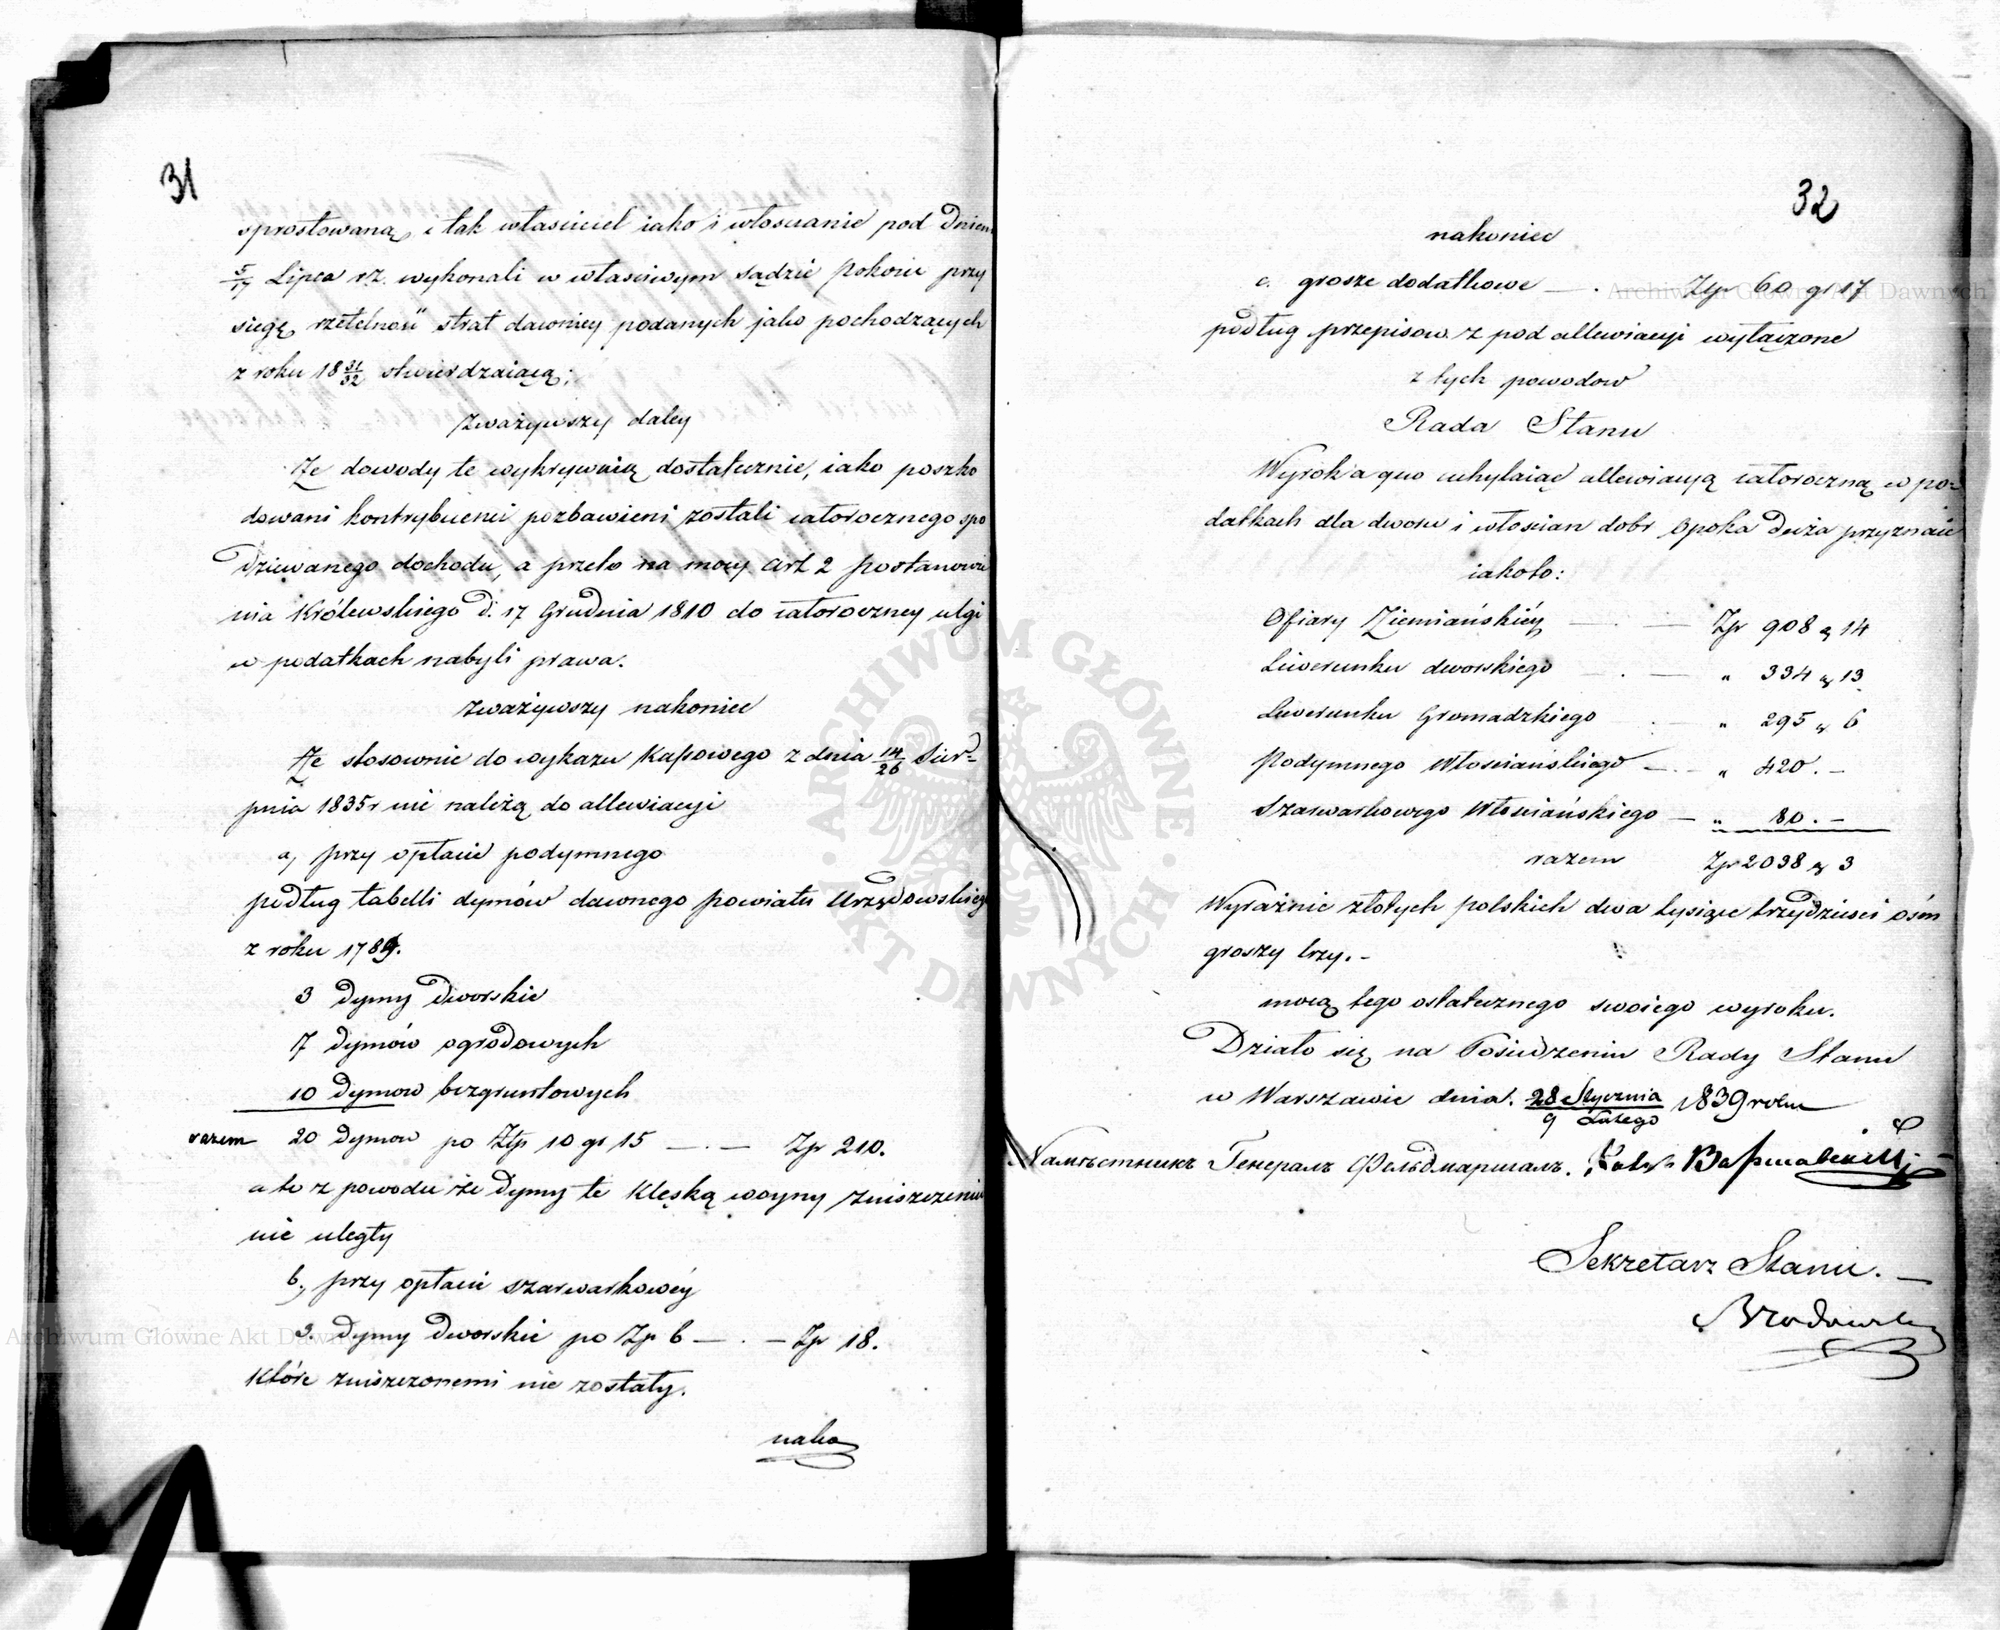 31
sprostowaną, i tak właściciel iako i włościanie pod dniem
5/17 Lipca r.z. wykonali w właściwym sądzie Pokoiu przy
sięgę rzetelność strat dawniey podanych jako pochodzących
z roku 18 31/32 stwierdzaiącą;
Zważywszy daley
Że dowody te wykrywaią dostatecznie, iako poszko
dowani kontrybuenci pozbawieni zostali całorocznego spo
dziewanego dochodu, a przeto na mocy art 2 postanowie
nia Królewskiego d. 17 Grudnia 1810 do całoroczney ulgi
w podatkach nabyli prawa.
Zważywszy nakoniec
Że stosownie do wykazu Kassowego z dnia 14/26 Sier=
pnia 1835 r nie należą do allewiacyi
a, przy opłacie podymnego
podług tabelli dymów dawnego powiatu Urzędowskiego
z roku 1789.
3 dymy dworskie
7 dymów ogrodowych
10 dymow bezgruntowych
razem 20 dymow po Złp 10 gr 15 — . — Zp 210.
a to z powodu że dymy te klęską woyny zniszczeniu
nie uległy
b, przy opłacie szarwarkowéy
3. dymy dworskie po Zp 6 — . — Zp 18.
które zniszczonemi nie zostały.
nako
32
nakoniec
c. grosze dodatkowe — . Zp 60 gr 17
podług przepisow z pod allewiacyi wyłączone
z tych powodow
Rada Stanu
Wyrok a quo uchylaiąc allewiacyą całoroczną w po=
datkach dla dworu i włościan dobr Opoka Duża przyznaie
iakoto:
Ofiary Ziemiańskiéy — . — Zp 908 g 14
Liwerunku dworskiego — . — " 334 g 13
Liwerunku Gromadzkiego . " 295 g 6
Podymnego Włościańskiego — . — " 420. —
Szarwarkowego Włościańskiego — " 80. —
razem Zp 2038 g 3
Wyraźnie złotych polskich dwa tysiące trzydzieści ośm
groszy trzy. —
mocą tego ostatecznego swoiego wyroku.
Działo się na Posiedzeniu Rady Stanu
w Warszawie dnia. 28 Stycznia/9 Lutego 1839 roku
Намѣстникъ Генералъ Фельдмаршалъ. Князь Варшавскій
Sekretarz Stanu. —
Brodowski
ARCHIWUM GŁÓWNE
AKT DAWNYCH
Archiwum Główne Akt Dawnych
Archiwum Główne Akt Dawnych